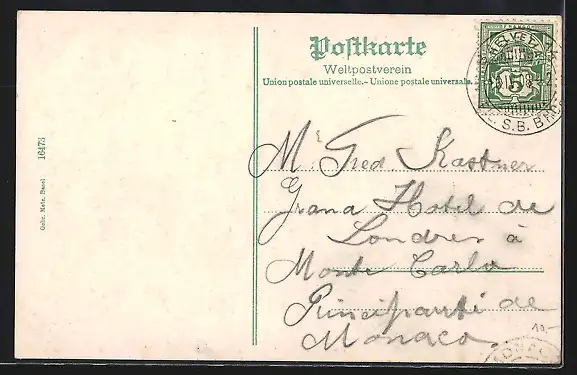 Postkarte
Weltpostverein
Union postale universelle.- Unione postale universale.
5
S.B.B.
Mr Fred Kastner
Grand Hotel de
Londres à
Monte Carlo
Principauté de
Monaco.
10.-
16473
Gebr. Metz, Basel